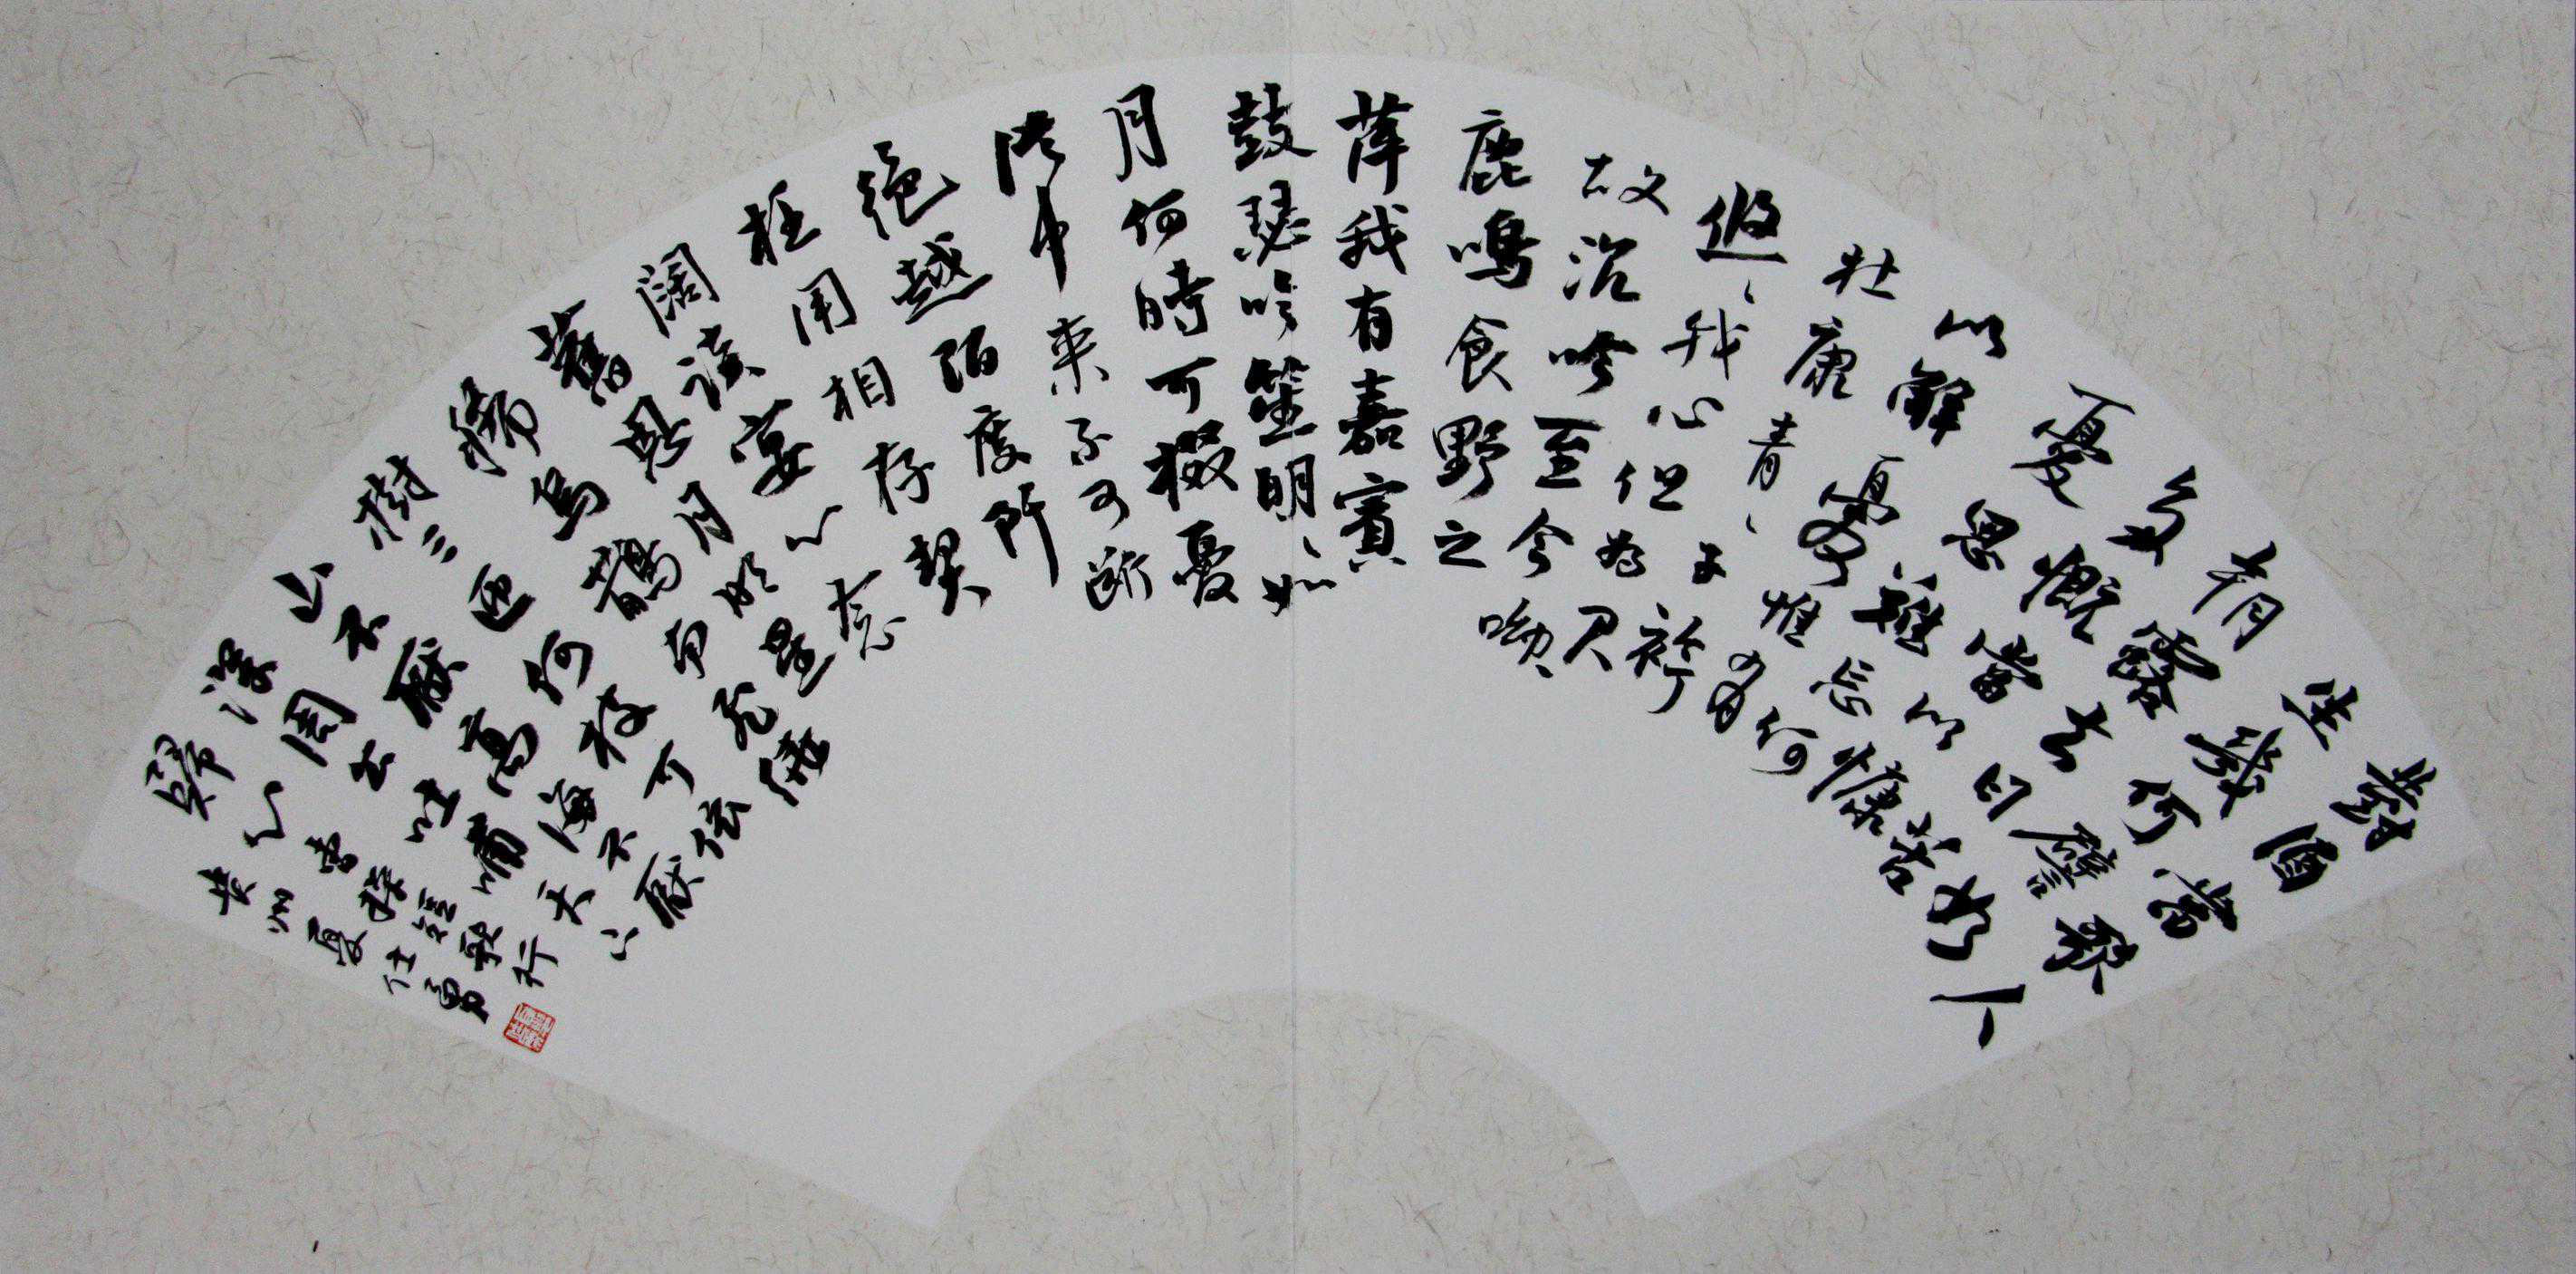 對酒當歌人
生幾何譬如
朝露去日苦
多慨當以慷
憂思難忘何
以解憂惟有
杜康青、子衿
悠、我心但為君
故沉吟至今呦、
鹿鳴食野之
苹我有嘉賓
鼓瑟吹笙明、如
月何時可掇憂
從中來不可斷
絕越陌度阡
枉用相存契
闊談宴心念
舊恩月明星
稀烏鵲南飛繞
樹三匝何枝可依
山不厭高海不厭
深周公吐哺天下
歸心書操短歌行
州夏仕富